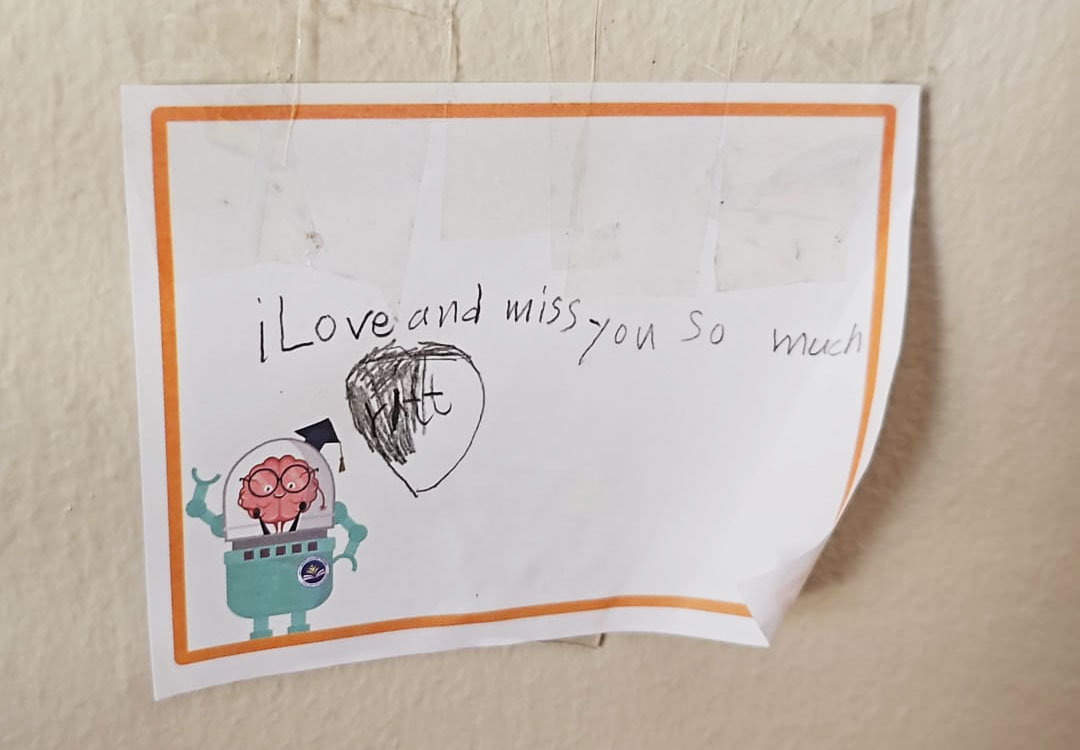 i Love and miss you so much